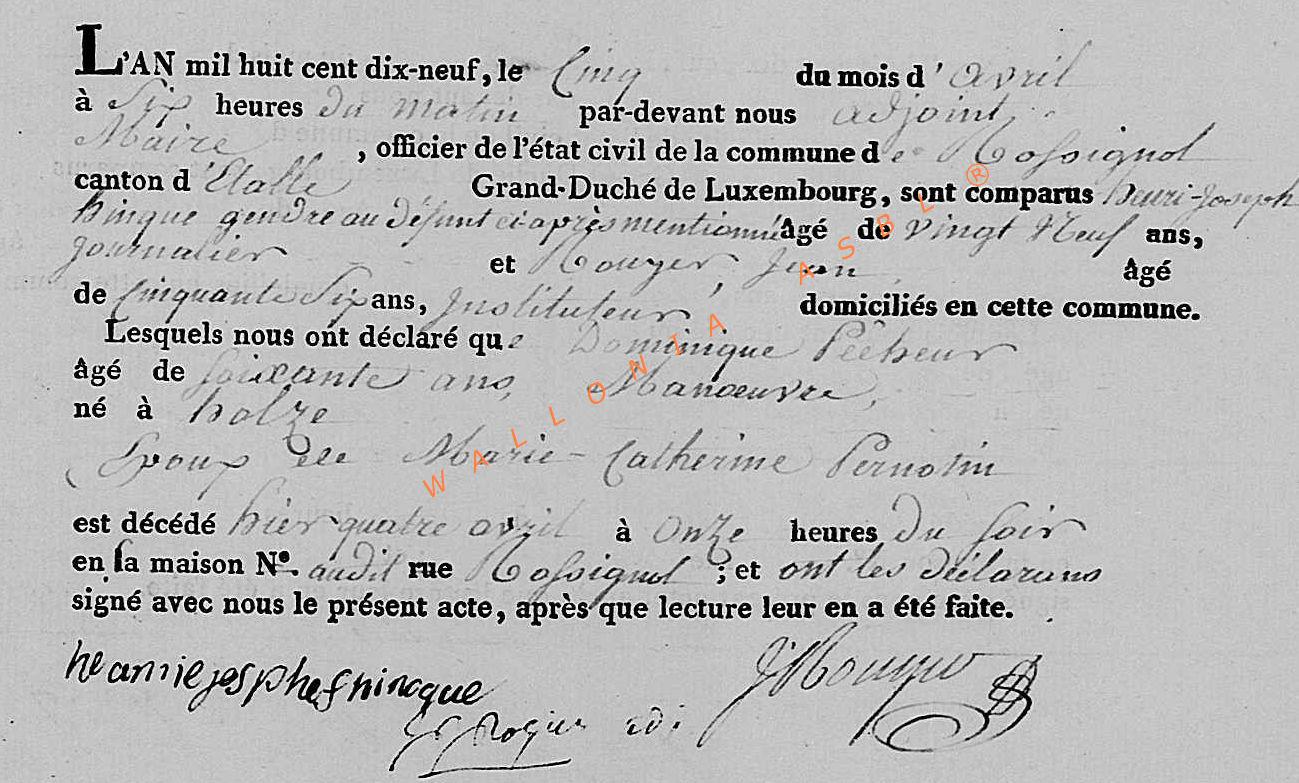 L'AN mil huit cent dix-neuf, le Cinq du mois d'avril
à Six heures du matin par-devant nous adjoint
Maire, officier de l'état civil de la commune de Rossignol
canton d'Etalle Grand-Duché de Luxembourg, sont comparus henri-Joseph
hinque gendre au défunt ci-après mentionné âgé de vingt Neuf ans,
journalier et Rouyer, Jean, âgé
de Cinquante Six ans, Instituteur domiciliés en cette commune.
Lesquels nous ont déclaré que Dominique Pêcheur
âgé de soixante ans, Manœuvre,
né à holze
Epoux de Marie-Catherine Pernotin
est décédé hier quatre avril à Onze heures du soir
en sa maison N°. audit rue Rossignol; et ont les déclarans
signé avec nous le présent acte, après que lecture leur en a été faite.
WALLONIA ASBL ®